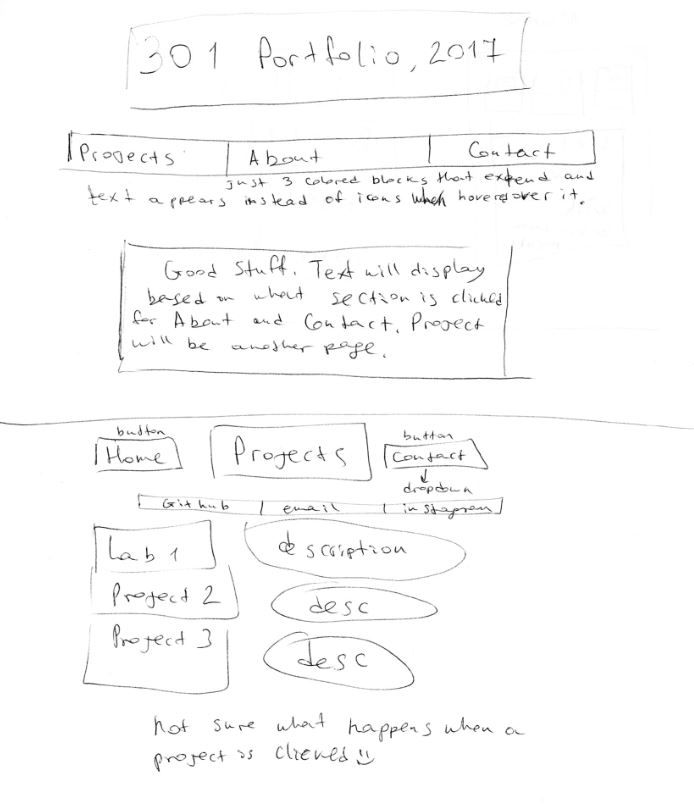 301 Portfolio, 2017
Projects About Contact
just 3 colored blocks that expend and
text appears instead of icons when hovered over it.
Good Stuff. Text will display
based on what section is clicked
for About and Contact. Project
will be another page.
button button
Home Projects Contact
dropdown
Github email instagram
Lab 1 description
Project 2 desc
Project 3 desc
not sure what happens when a
project is clicked